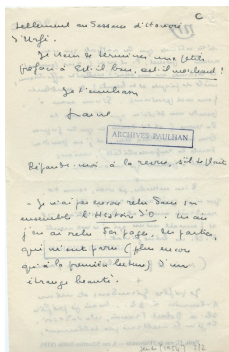 C
tellement au Sesseur d'Honoré
d'Urfé.
Je viens de terminer une petite
préface à Est-il bon, est-il méchant ?
Je t'embrasse
ARCHIVES PAULHAN
Réponds-moi à la revue, s'il te plaît
- Je n'ai pas encore relu dans son
ensemble l'Histoire d'O. Mais
j'en ai relu 50 pages. Les parties
qui m'ont paru (plus encore
qu'à la première lecture) d'une
étrange beauté.